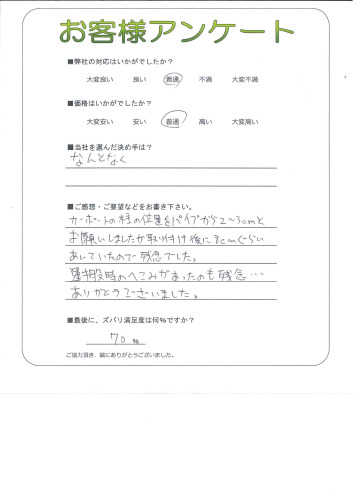 お客様アンケート
■弊社の対応はいかがでしたか？
大変良い 良い 普通 不満 大変不満
■価格はいかがでしたか？
大変安い 安い 普通 高い 大変高い
■当社を選んだ決め手は？
なんとなく
■ご感想・ご要望などをお書き下さい。
カーポートの柱の位置をパイプから2〜3cmと
お願いしましたが取り付け後に3cmぐらい
あいていたので残念でした。
運搬時のへこみがあったのも残念…
ありがとうございました。
■最後に、ズバリ満足度は何%ですか？
70 %
ご協力頂き、誠にありがとうございました。